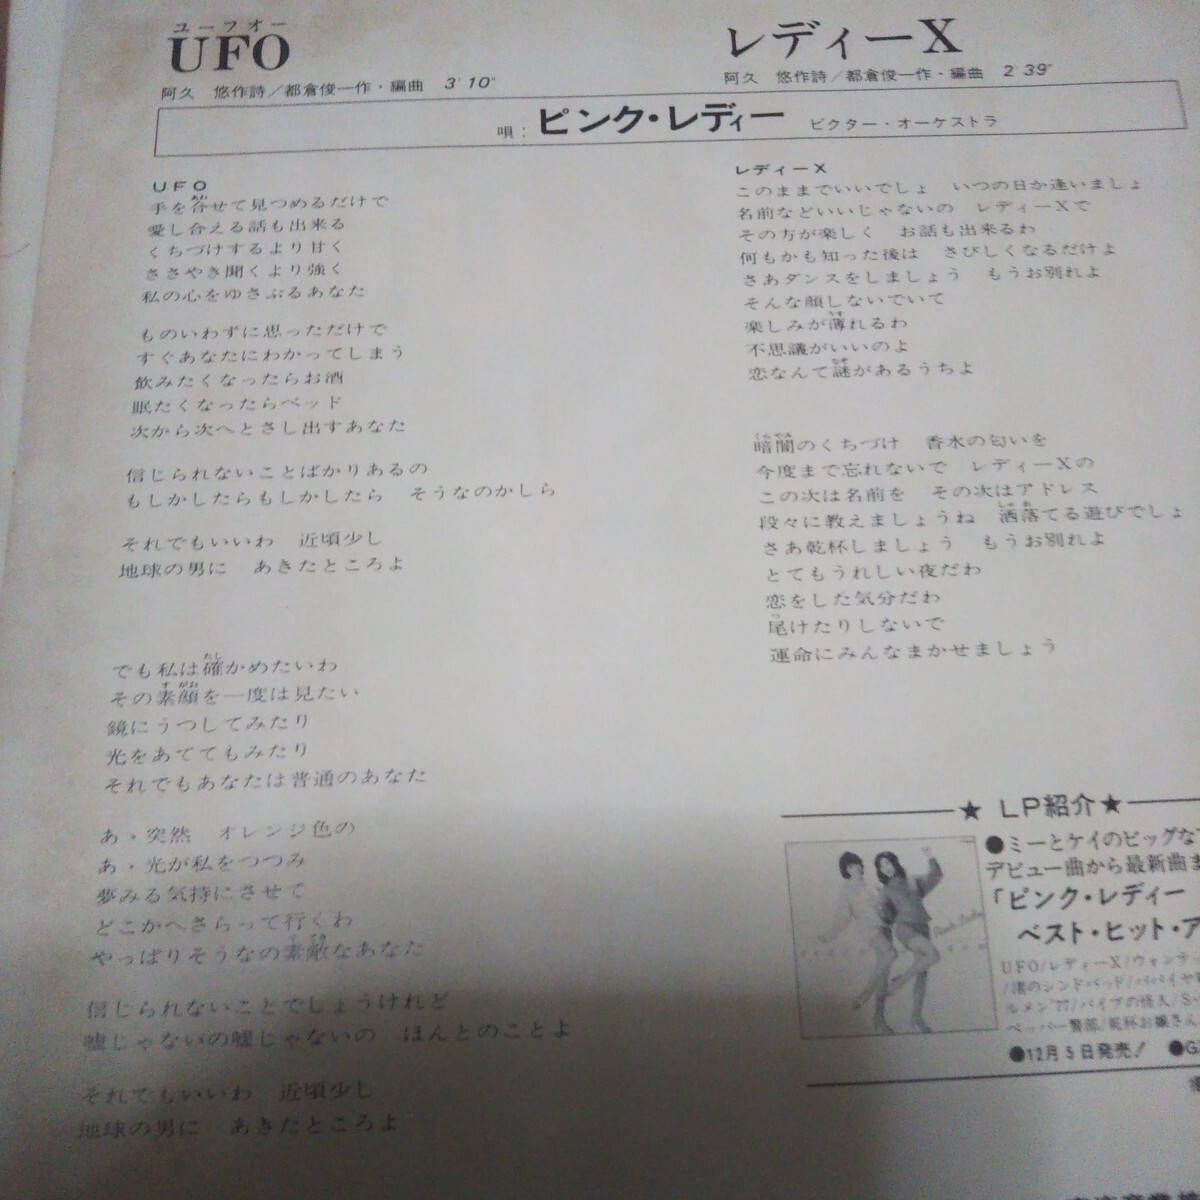 ユーフォー
UFO
阿久 悠作詩/都倉俊一作・編曲 3'10"
レディーX
阿久 悠作詩/都倉俊一作・編曲 2'39"
唄：ピンク・レディー ビクター・オーケストラ
UFO
手を合せて見つめるだけで
愛し合える話も出来る
くちづけするより甘く
ささやき聞くより強く
私の心をゆさぶるあなた
ものいわずに思っただけで
すぐあなたにわかってしまう
飲みたくなったらお酒
眠たくなったらベッド
次から次へとさし出すあなた
信じられないことばかりあるの
もしかしたらもしかしたら そうなのかしら
それでもいいわ 近頃少し
地球の男に あきたところよ
でも私は確かめたいわ
その素顔を一度は見たい
鏡にうつしてみたり
光をあててもみたり
それでもあなたは普通のあなた
あ・突然 オレンジ色の
あ・光が私をつつみ
夢みる気持にさせて
どこかへさらって行くわ
やっぱりそうなの素敵なあなた
信じられないことでしょうけれど
嘘じゃないの嘘じゃないの ほんとのことよ
それでもいいわ 近頃少し
地球の男に あきたところよ
レディーX
このままでいいでしょ いつの日か逢いましょ
名前などいいじゃないの レディーXで
その方が楽しく お話も出来るわ
何もかも知った後は さびしくなるだけよ
さあダンスをしましょう もうお別れよ
そんな顔しないでいて
楽しみが薄れるわ
不思議がいいのよ
恋なんて謎があるうちよ
暗闇のくちづけ 香水の匂いを
今度まで忘れないで レディーXの
この次は名前を その次はアドレス
段々に教えましょうね 洒落てる遊びでしょ
さあ乾杯しましょう もうお別れよ
とてもうれしい夜だわ
恋をした気分だわ
尾けたりしないで
運命にみんなまかせましょう
★ LP紹介★
●ミーとケイのビッグな
デビュー曲から最新曲ま
「ピンク・レディー
ベスト・ヒット・ア
UFO/レディーX/ウォンテッ
/渚のシンドバッド/パパイヤ
ルメン'77/パイプの怪人/S
ペッパー警部/乾杯お嬢さん
●12月5日発売！ ●G